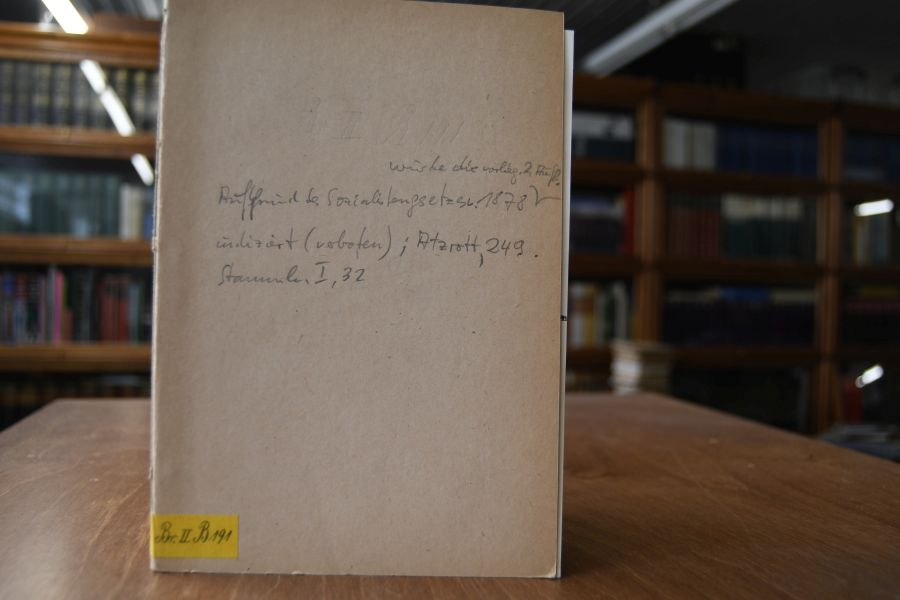 wurde die vorlieg. 2. Aufl.
Auf Grund des Sozialistengesetzes v. 1878
indiziert (verboten); Atzrott, 249.
Stammh. I, 32
Br. II B 191